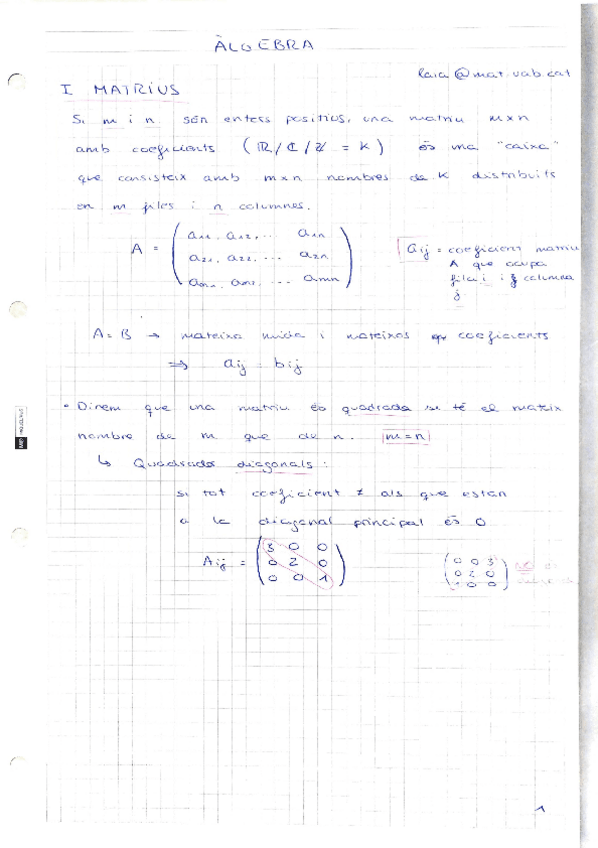 ÀLGEBRA
laia@mat.uab.cat
I MATRIUS
Si m i n són enters positius, una matriu mxn
amb coeficients (ℝ/ℂ/ℤ = K) és una "caixa"
que consisteix amb mxn nombres de K distribuïts
en m files i n columnes.
A = ( a11, a12, ... a1n
a21, a22, ... a2n
am1, am2, ... amn )
aij = coeficient matriu
A que ocupa
fila i i columna
j
A = B → mateixa mida i mateixos coeficients
⇒ aij = bij
• Direm que una matriu és quadrada si té el mateix
nombre de m que de n. m=n
↳ Quadrades diagonals:
si tot coeficient ≠ als que estan
a la diagonal principal és 0
Aij = ( 3 0 0
0 2 0
0 0 1 )
( 0 0 3
0 2 0
1 0 0 )
NO
1